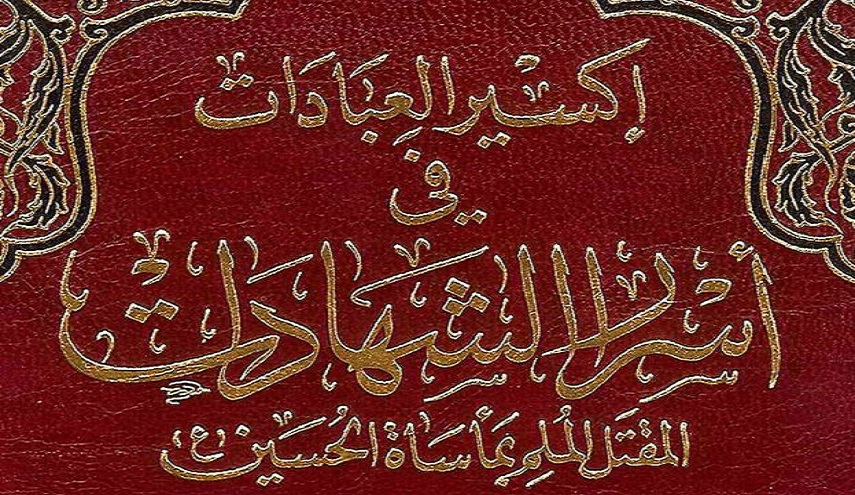 إكسير العبادات
في
أسرار الشهادات
المقتل الملم بمأساة الحسين (ع)